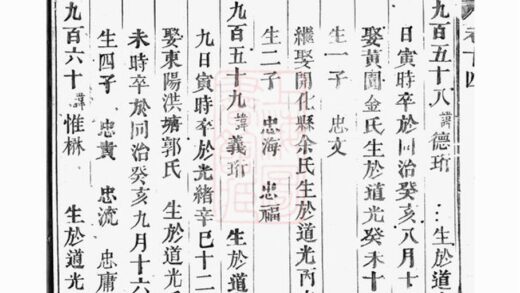 卷十四
九百五十八 諱德珩 生於道
日寅時卒於同治癸亥八月十
娶黃園金氏生於道光癸未十
生一子 忠文
繼娶開化縣余氏生於道光丙
生二子 忠海 忠福
九百五十九 諱義珩 生於道
九日寅時卒於光緒辛巳十二
娶東陽洪塘郭氏 生於道光
未時卒於同治癸亥九月十六
生四子 忠貴 忠流 忠庸
九百六十 諱惟楙 生於道光